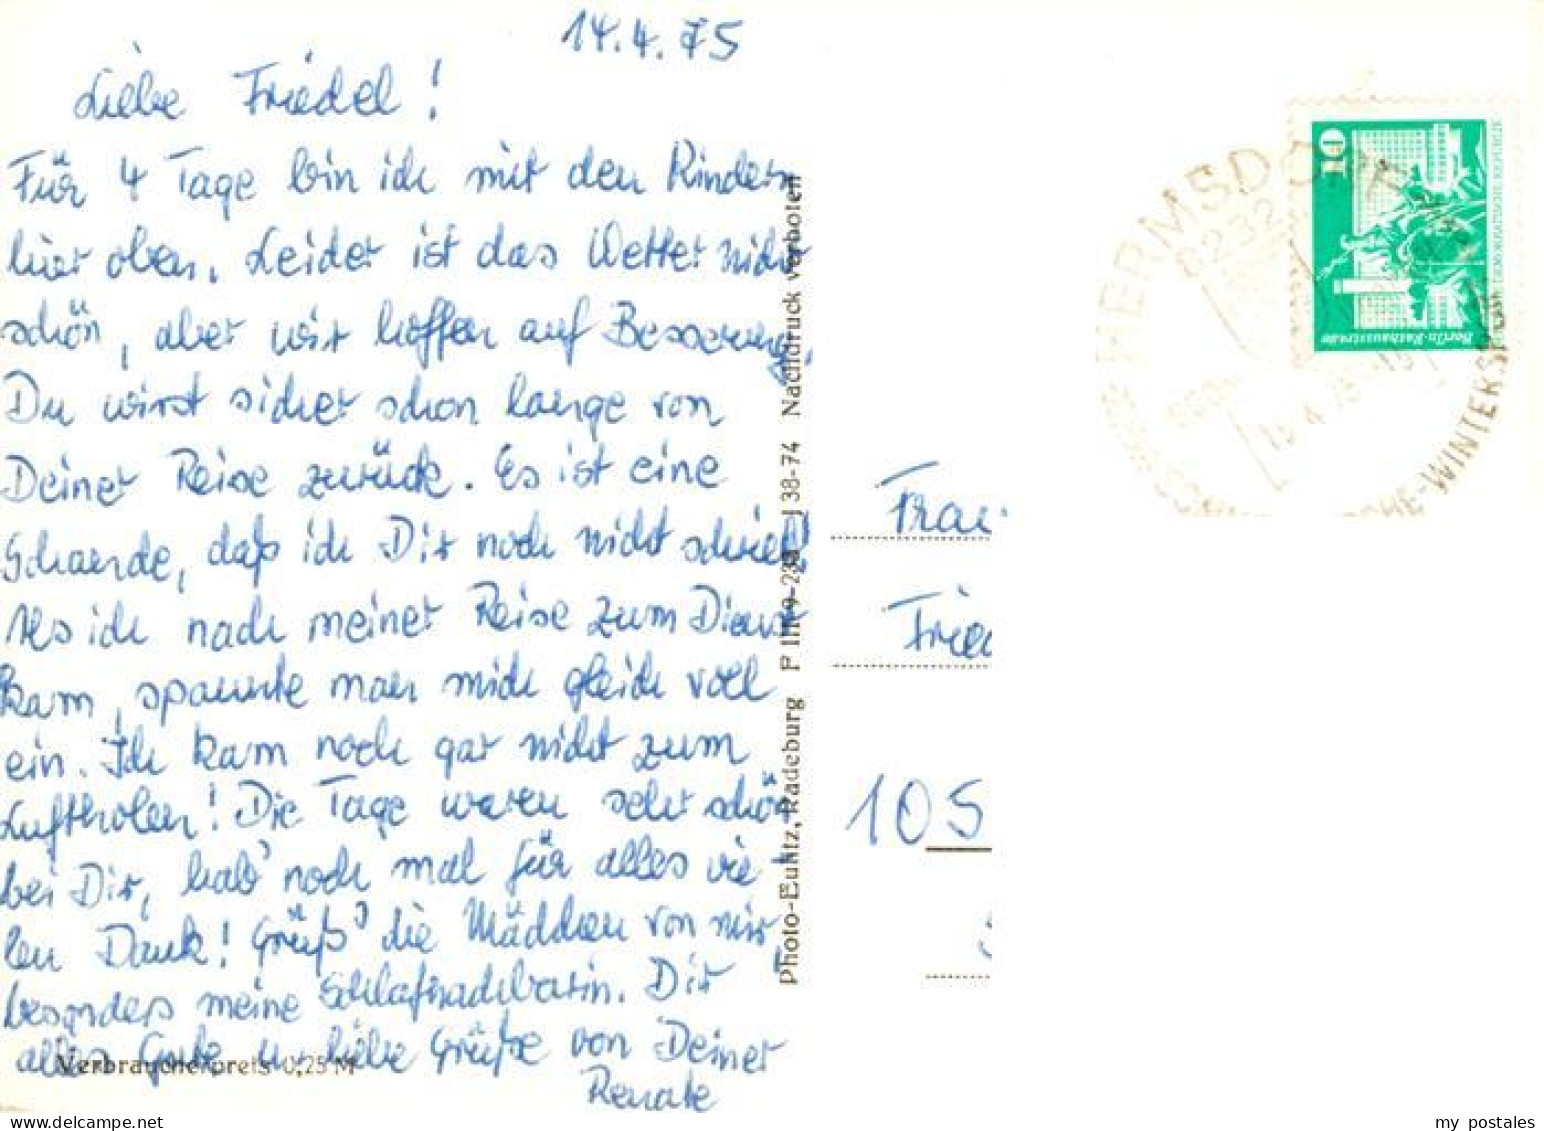 14.4.75
Liebe Friedel!
Für 4 Tage bin ich mit den Kindern
hier oben. Leider ist das Wetter nicht
schön, aber wir hoffen auf Besserung.
Du wirst sicher schon lange von
Deiner Reise zurück. Es ist eine
Schande, daß ich Dir noch nicht schrieb!
Als ich nach meiner Reise zum Dienst
kam, spannte man mich gleich voll
ein. Ich kam noch gar nicht zum
Luftholen! Die Tage waren sehr schön
bei Dir, hab' noch mal für alles vie
len Dank! Grüß' die Mädchen von mir,
besonders meine Schlafnachbarin. Dir
alles Gute u. liebe Grüße von Deiner
Renate
Verbraucherpreis 0,25 M
Photo-Eulitz, Radeburg P III/9-238 J 38-74 Nachdruck verboten
HERMSDORF
8232
WINTERSP
10
Berlin Rathausstraße
Frau
Frie
105
my postales